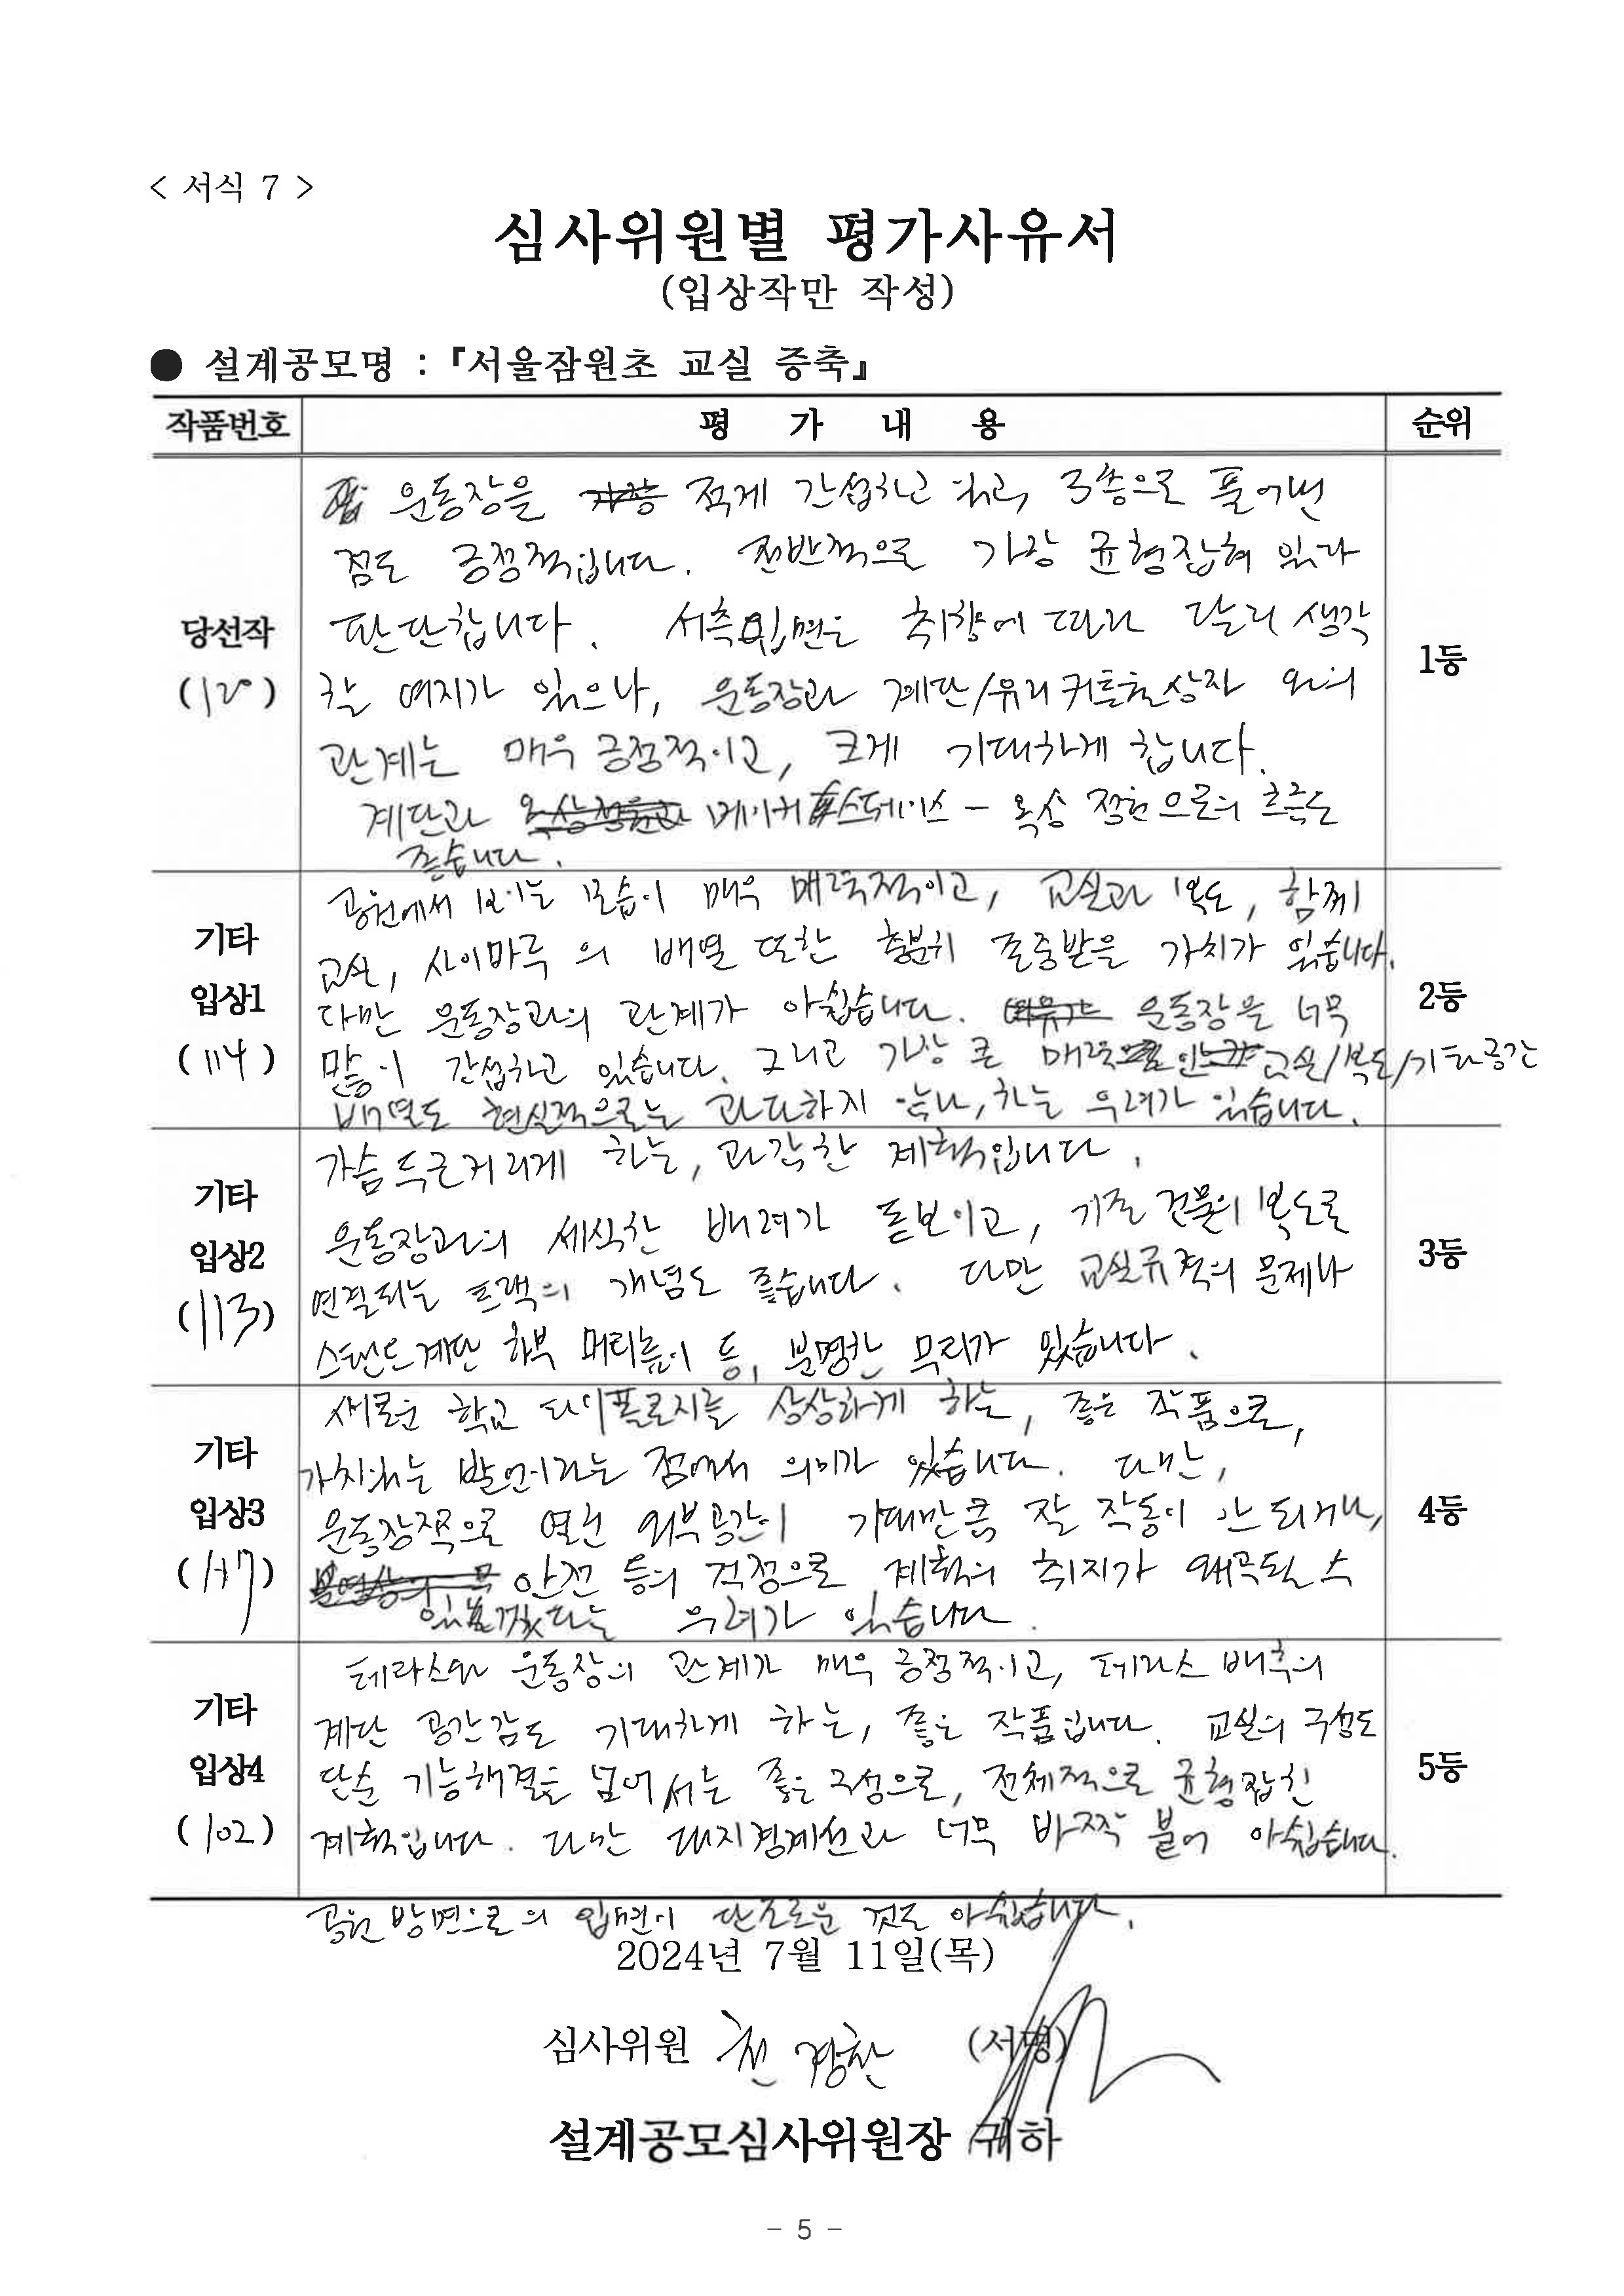 < 서식 7 >
심사위원별 평가사유서
(입상작만 작성)
● 설계공모명 : 『서울잠원초 교실 증축』
작품번호 평 가 내 용 순위
당선작
(120)
운동장을 적게 간섭하고 있고, 3층으로 풀어낸
점도 긍정적입니다. 전반적으로 가장 균형잡혀 있다
판단합니다. 서측입면은 취향에 따라 달리 생각
할 여지가 있으나, 운동장과 계단/유리커튼월상자 와의
관계는 매우 긍정적이고, 크게 기대하게 합니다.
계단과 메이커스페이스 - 옥상 정원으로의 흐름도
좋습니다.
1등
기타
입상1
(114)
공원에서 보이는 모습이 매우 매력적이고, 교실과 복도, 함께
교실, 사이마루 의 배열 또한 충분히 존중받을 가치가 있습니다.
다만 운동장과의 관계가 아쉽습니다. 운동장을 너무
많이 간섭하고 있습니다. 그리고 가장 큰 매력 교실/복도/기타공간
배열도 현실적으로는 과다하지 않나, 하는 우려가 있습니다.
2등
기타
입상2
(113)
가슴 두근거리게 하는, 과감한 계획입니다.
운동장과의 세심한 배려가 돋보이고, 기존 건물의 복도로
연결되는 트랙의 개념도 좋습니다. 다만 교실규격의 문제나
스탠드계단 하부 머리높이 등, 분명한 무리가 있습니다.
3등
기타
입상3
(117)
새로운 학교 타이폴로지를 상상하게 하는, 좋은 작품으로,
가치있는 발언이라는 점에서 의미가 있습니다. 다만,
운동장쪽으로 열린 외부공간이 기대만큼 잘 작동이 안 되거나,
안전 등의 걱정으로 계획의 취지가 왜곡될 수
있겠다는 우려가 있습니다.
4등
기타
입상4
(102)
테라스와 운동장의 관계가 매우 긍정적이고, 테라스 배후의
계단 공간감도 기대하게 하는, 좋은 작품입니다. 교실의 구성도
단순 기능해결을 넘어서는 좋은 구성으로, 전체적으로 균형잡힌
계획입니다. 다만 대지경계선과 너무 바짝 붙어 아쉽습니다.
5등
공원 방면으로의 입면이 단조로운 것도 아쉽습니다.
2024년 7월 11일(목)
심사위원 천 장환 (서명)
설계공모심사위원장 귀하
- 5 -